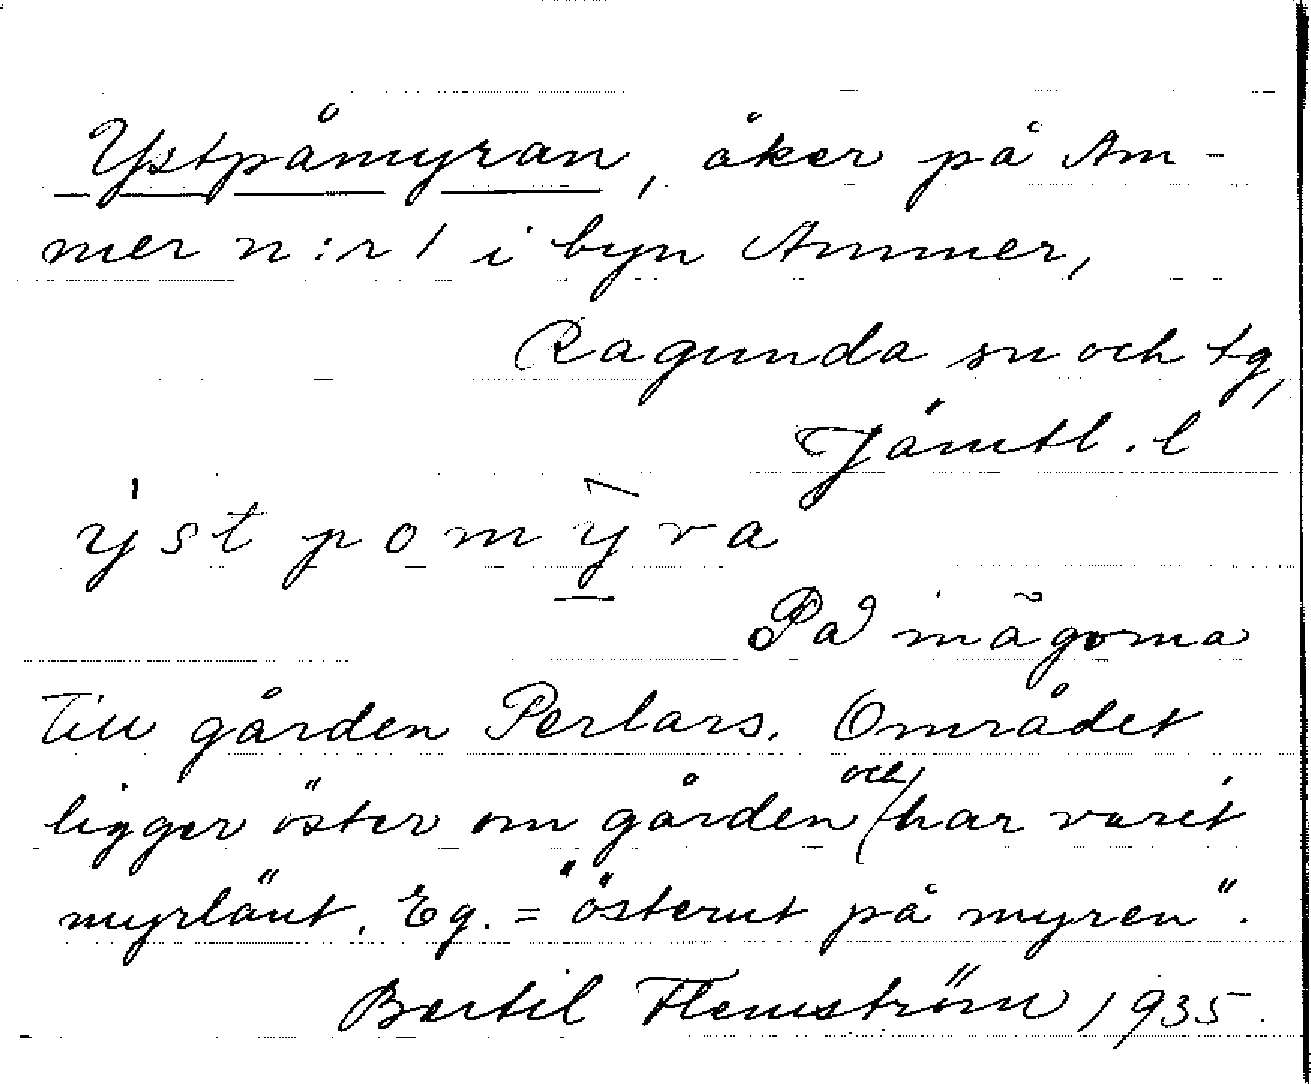 Ystpåmyran, åker på Am-
mer n:r 1 i byn Ammer,
Ragunda sn och tg,
Jämtl. l
ýst pomỳ̲ra
På inägorna
till gården Perlars. Området
ligger öster om gården och har varit
myrlänt. Eg. = "österut på myren".
Bertil Flemström 1935.